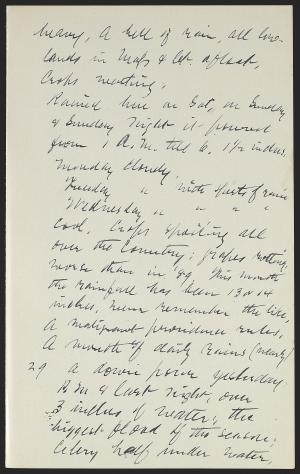 heavy, A hell of rain, all low-
lands in Mass & Ct. afloat,
Crops rotting.
Rained here on Sat, on Sunday
& Sunday night it poured
from 1 A.M. till 6. 1½ inches.
Monday cloudy,
Tuesday " with spits of rain
Wednesday " " " "
Cool. Crops spoiling all
over the Country; grapes rotting,
worse than in '89. This month
the rainfall has been 13 or 14
inches, never remember the like,
A malignant providence rules.
A month of daily rains (nearly)
29 a down pour yesterday
P.M. & last night, over
3 inches of water; the
biggest flood of the season;
Celery half under water,